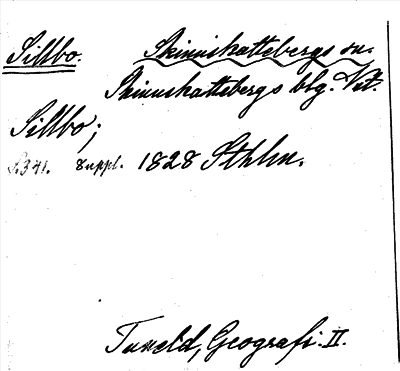 Sillbo. Skinnskattebergs sn.
Skinnskattebergs blg. Vst.
Sillbo;
S. 341. Suppl. 1828 Sthlm.
Tuneld, Geografi. II.